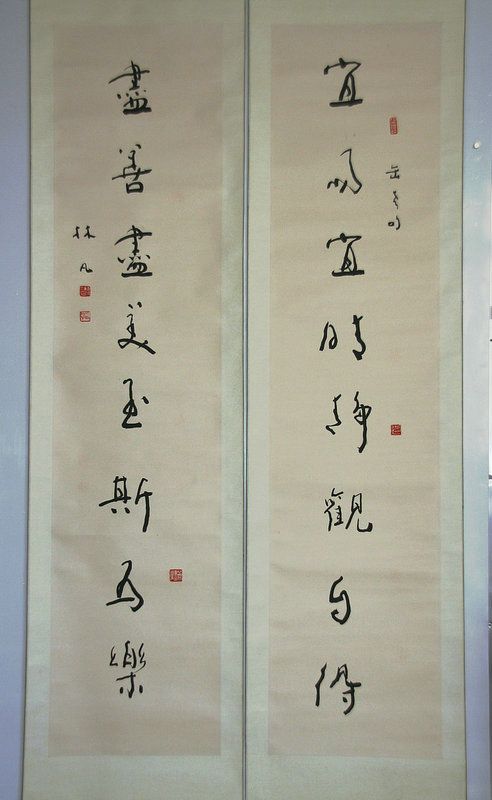 宜宜晴靜觀自得
缶老句
盡善盡美至斯為樂
林凡